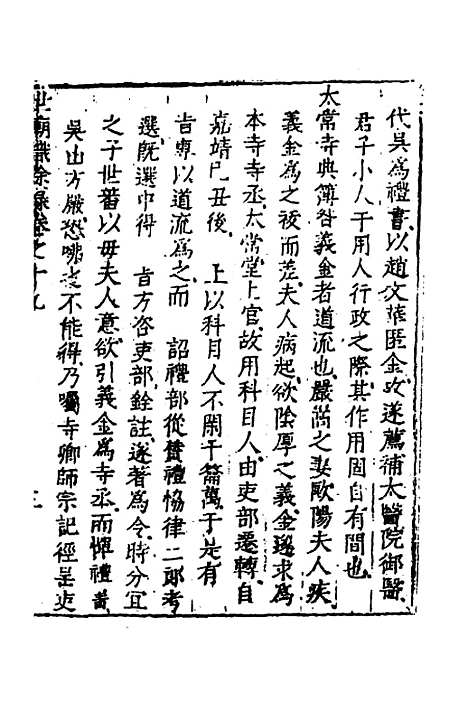 代吳為禮書以趙文華匿金故遂薦補太醫院御醫
君子小人于用人行政之際其作用固自有間也
太常寺典簿昝義金者道流也嚴嵩之妻歐陽夫人疾
義金為之祓而差夫人病起欲陰厚之義金遂求為
本寺寺丞太常堂上官故用科目人由吏部遷轉自
嘉靖己丑後　上以科目人不閑于籥萬于是有
旨專以道流為之而　詔禮部從贊禮恊律二郎考
選既選中得　旨方咨吏部銓註遂著為令時分宜
之子世蕃以毋夫人意欲引義金為寺丞而憚禮書
吳山方嚴懇啡交不能得乃囑寺卿師宗記徑呈吏
世廟識余錄卷之十九　三